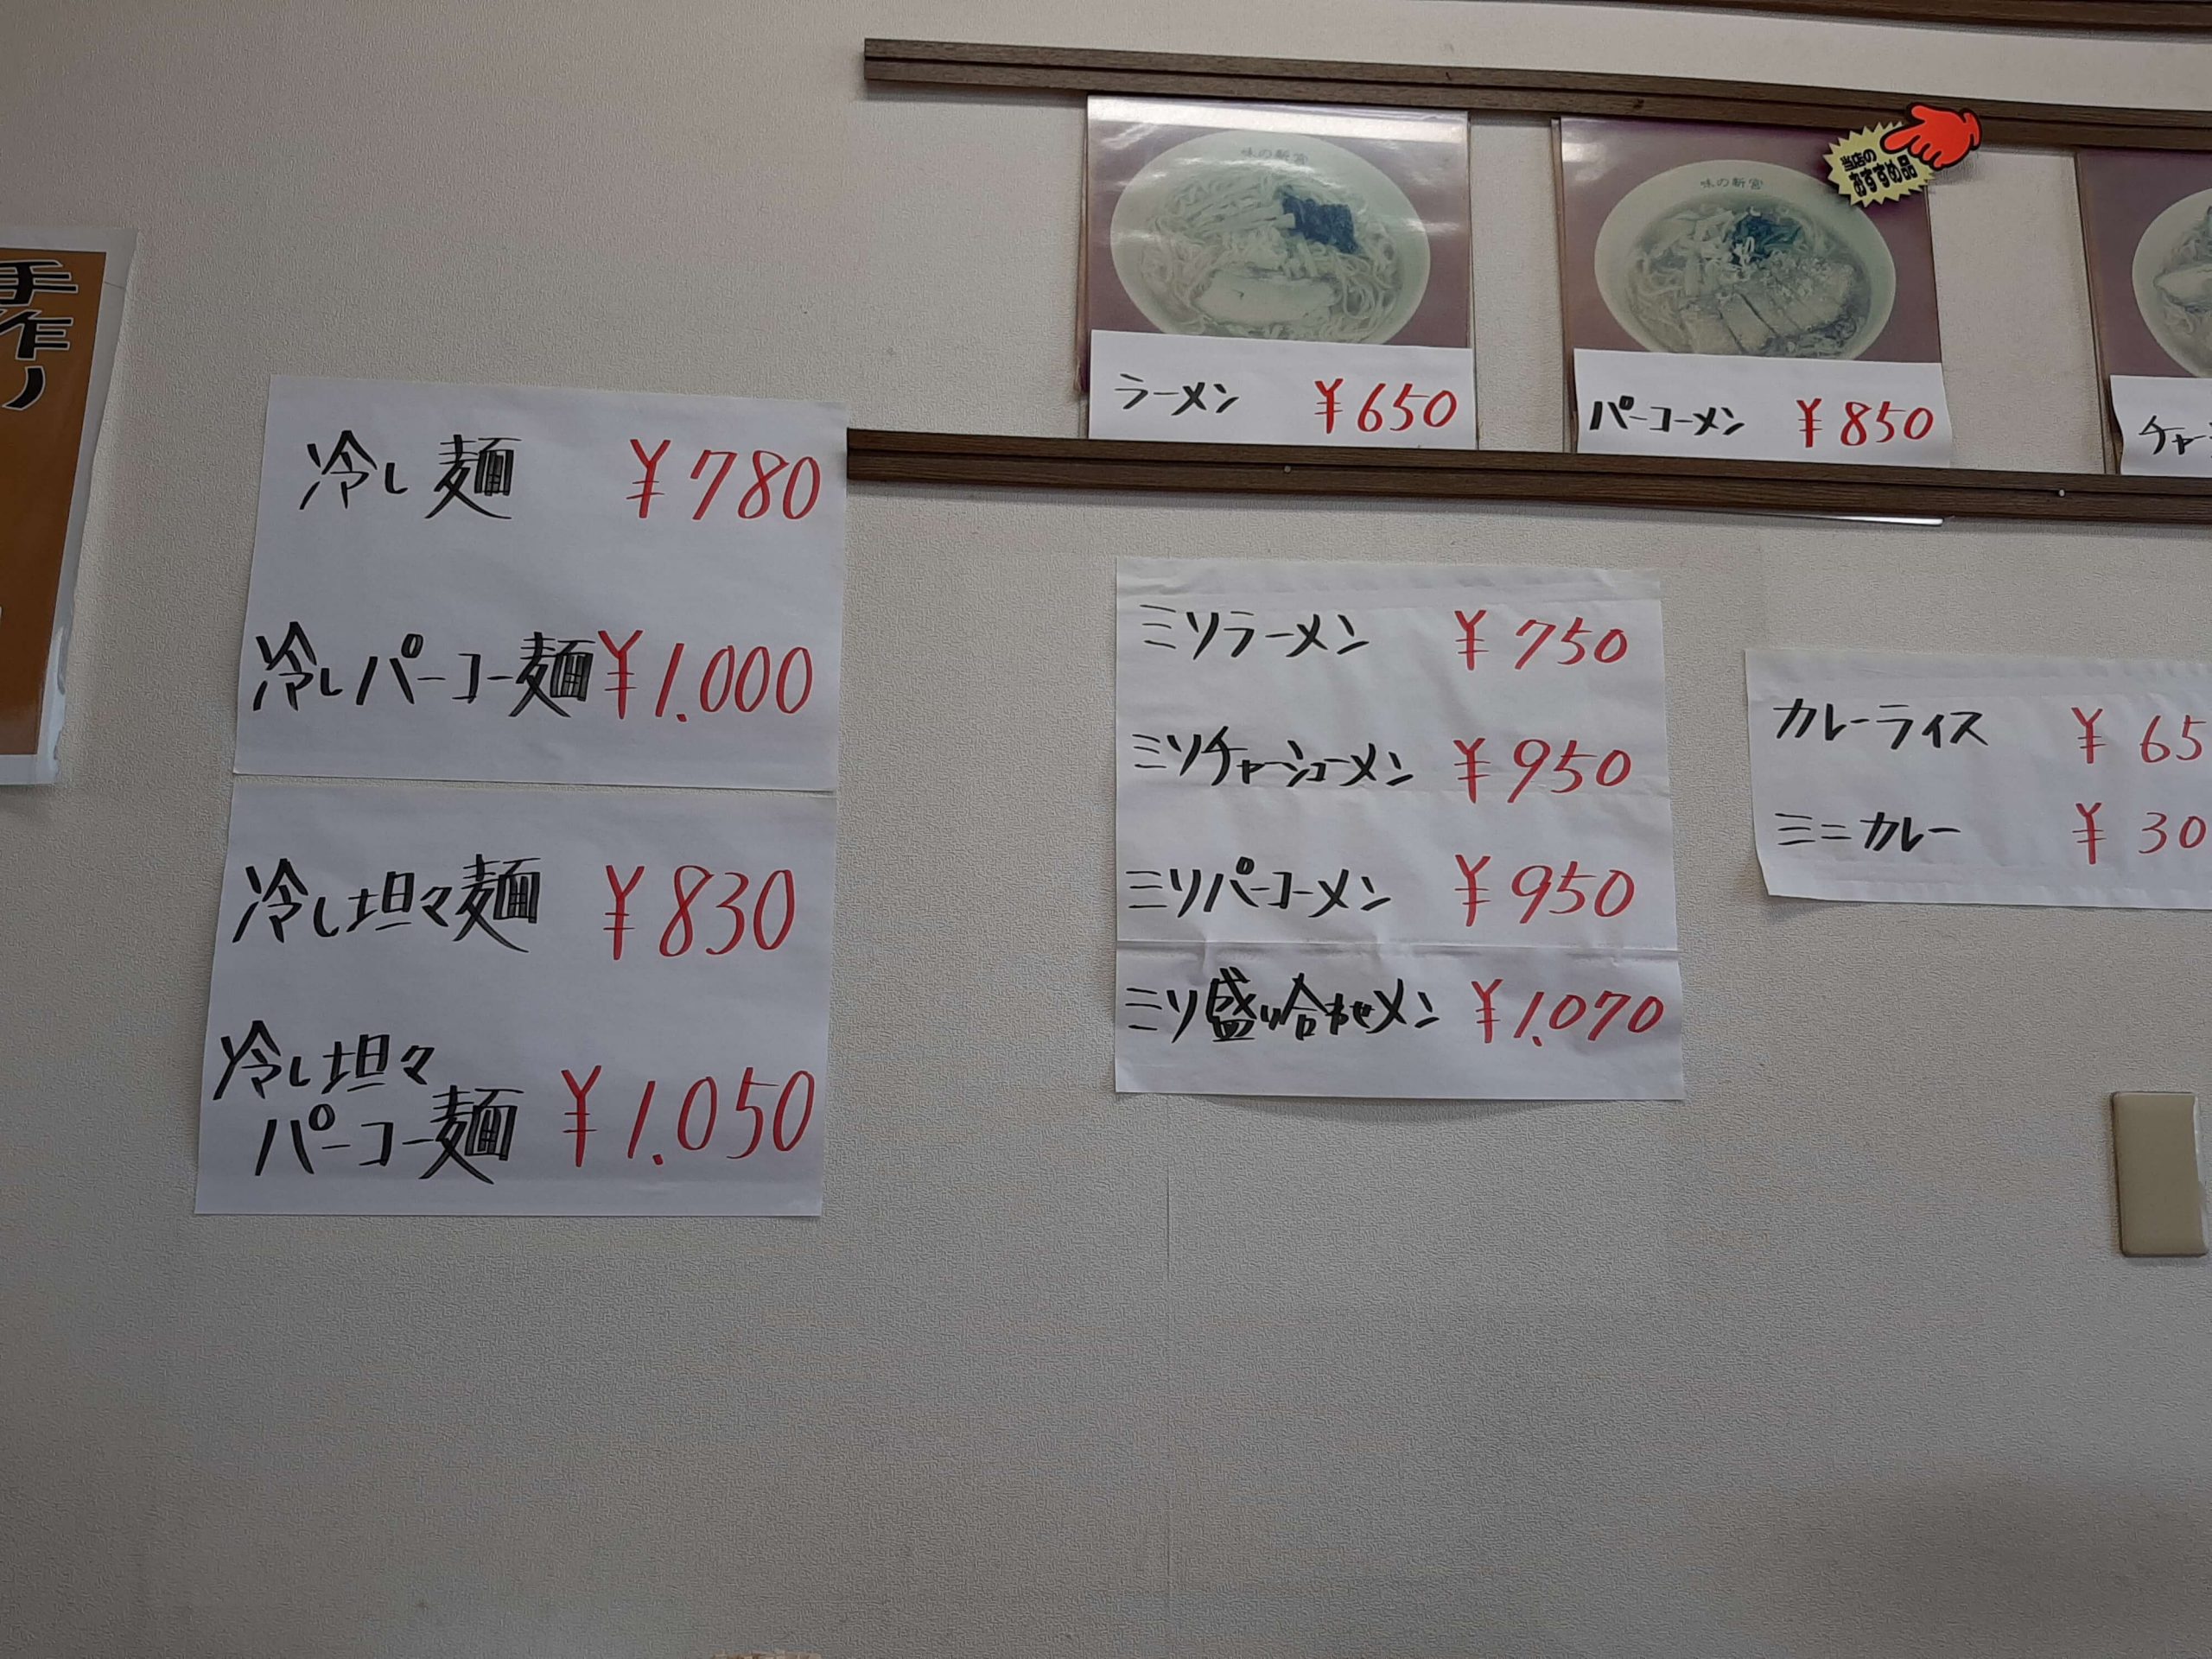 手作り
味の新宮
ラーメン ¥650
味の新宮
当店の
おすすめ品
パーコーメン ¥850
チャー
冷し麺 ¥780
冷しパーコー麺 ¥1.000
冷し坦々麺 ¥830
冷し坦々
パーコー麺 ¥1.050
ミソラーメン ¥750
ミソチャーシューメン ¥950
ミソパーコーメン ¥950
ミソ盛り合わせメン ¥1.070
カレーライス ¥65
ミニカレー ¥30